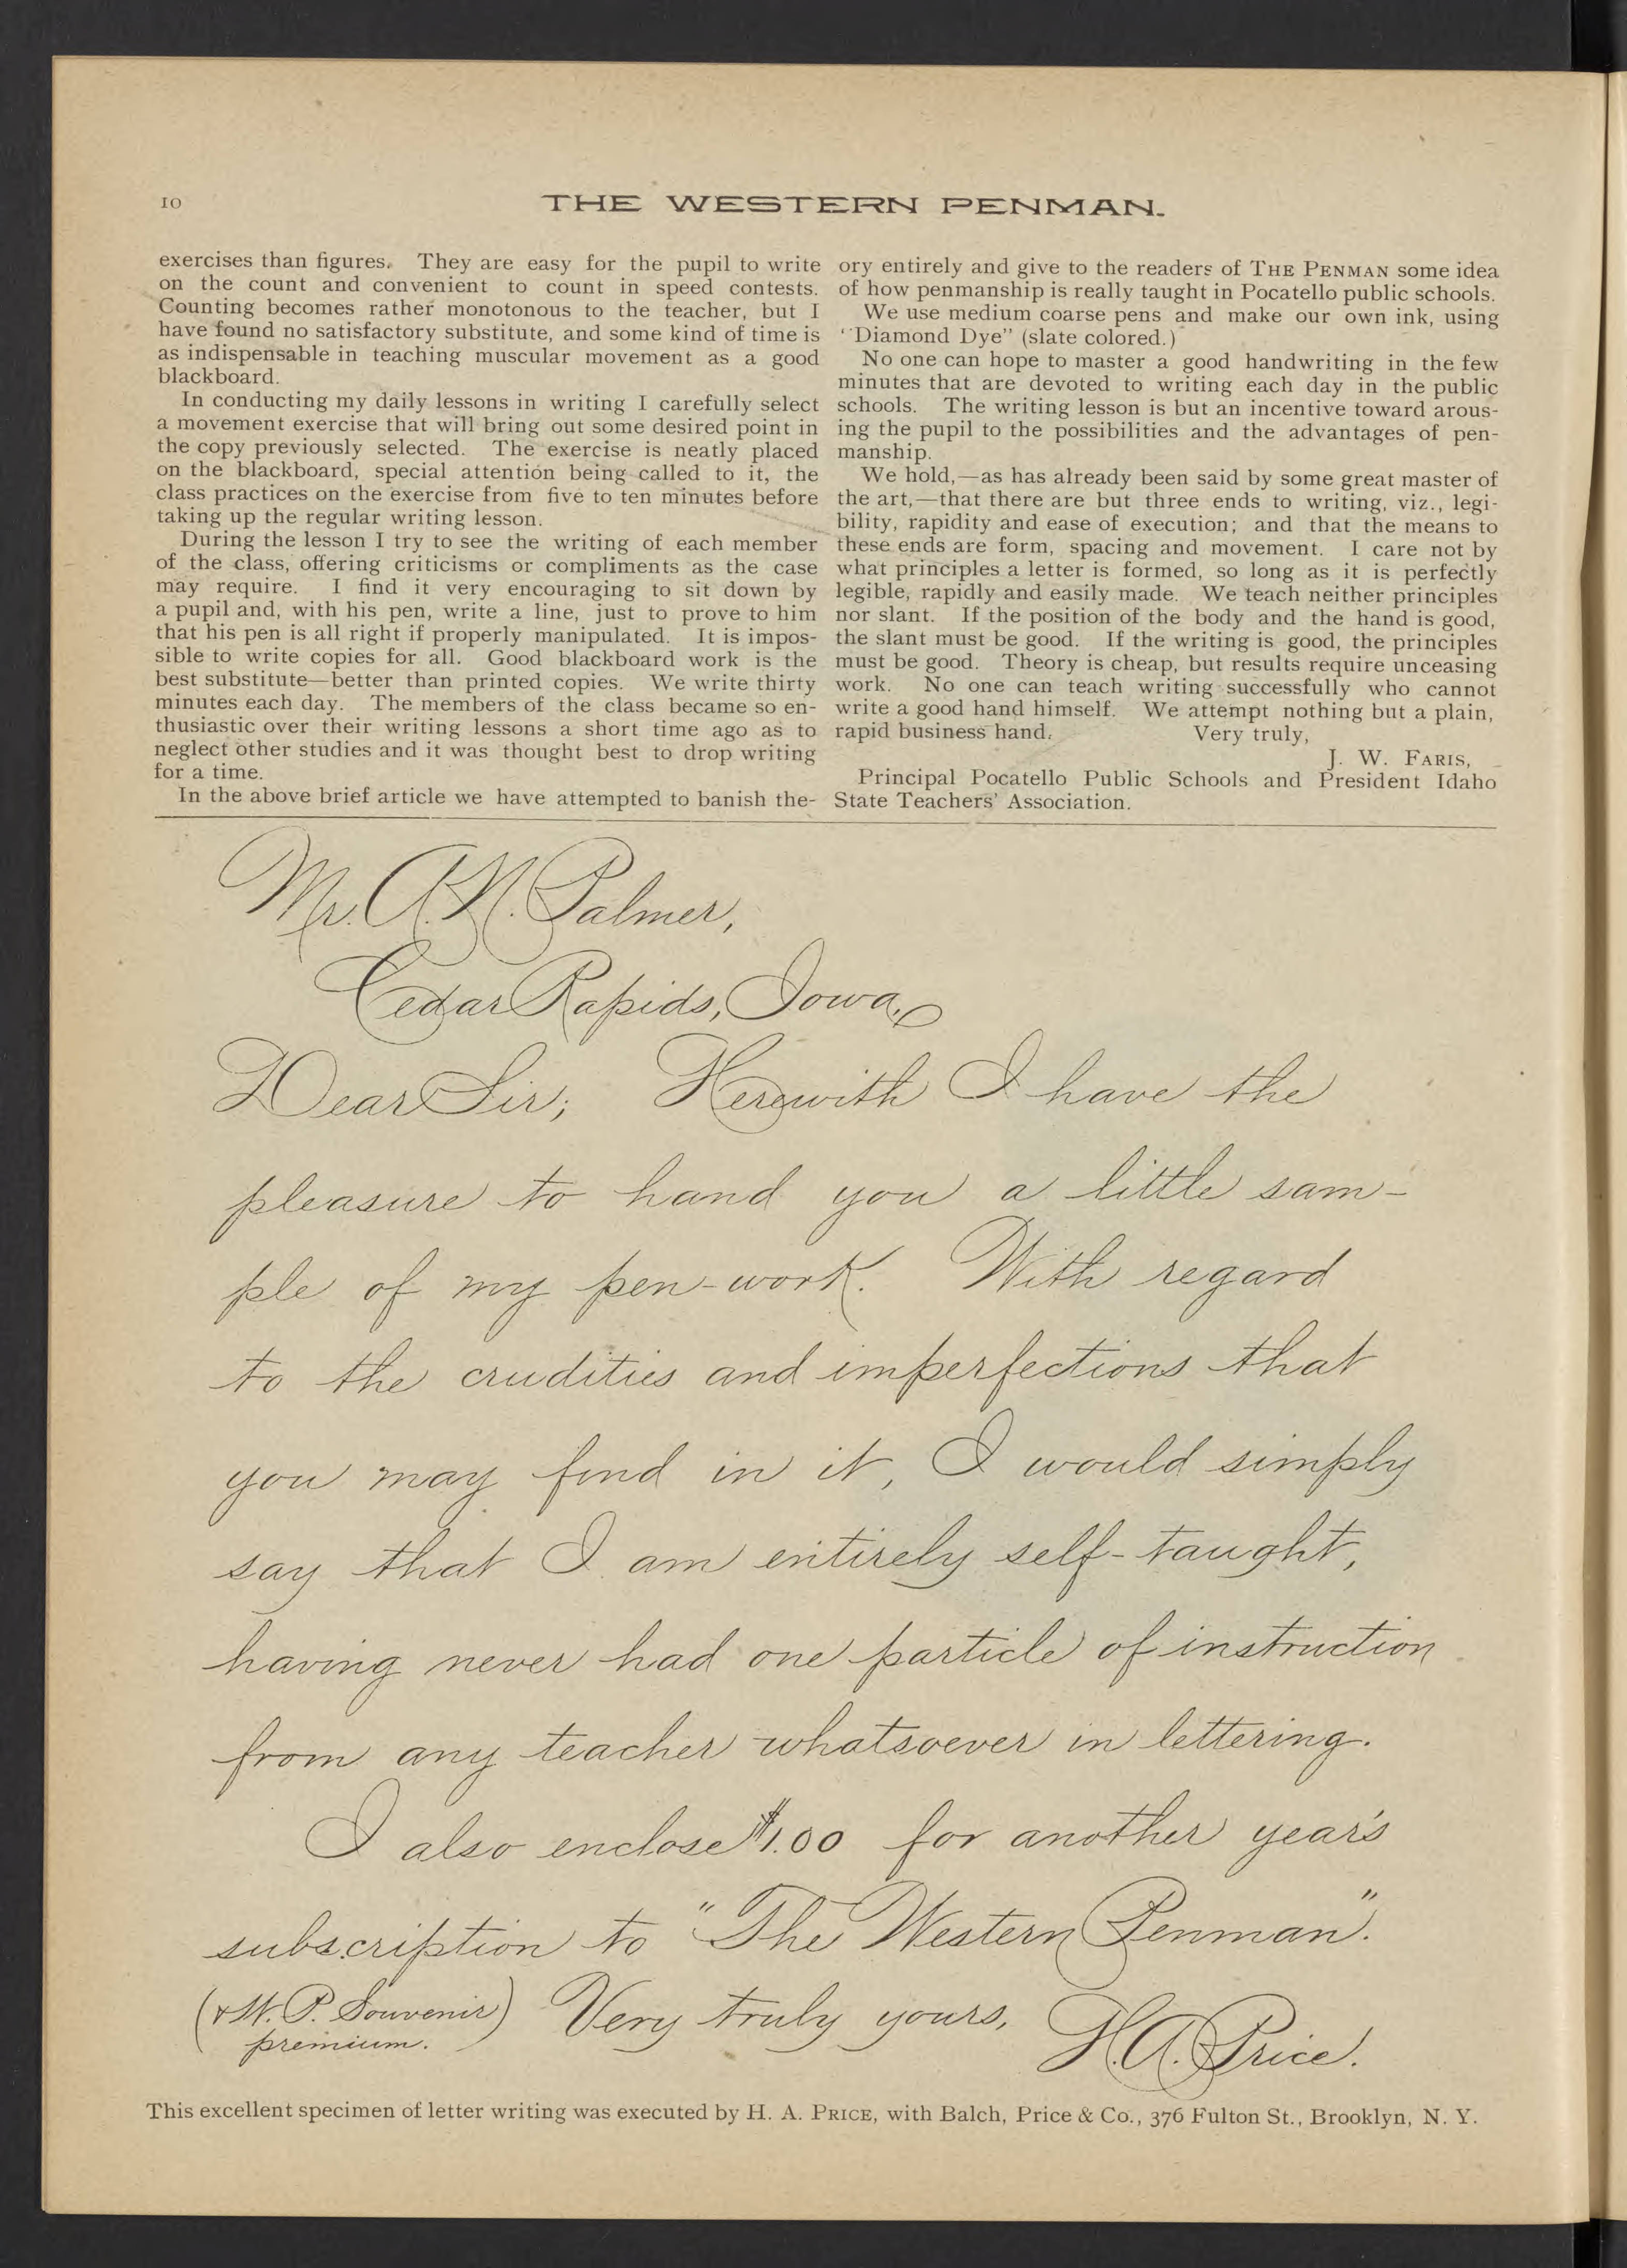 10
THE WESTERN PENMAN.
exercises than figures. They are easy for the pupil to write
on the count and convenient to count in speed contests.
Counting becomes rather monotonous to the teacher, but I
have found no satisfactory substitute, and some kind of time is
as indispensable in teaching muscular movement as a good
blackboard.
In conducting my daily lessons in writing I carefully select
a movement exercise that will bring out some desired point in
the copy previously selected. The exercise is neatly placed
on the blackboard, special attention being called to it, the
class practices on the exercise from five to ten minutes before
taking up the regular writing lesson.
During the lesson I try to see the writing of each member
of the class, offering criticisms or compliments as the case
may require. I find it very encouraging to sit down by
a pupil and, with his pen, write a line, just to prove to him
that his pen is all right if properly manipulated. It is impos-
sible to write copies for all. Good blackboard work is the
best substitute—better than printed copies. We write thirty
minutes each day. The members of the class became so en-
thusiastic over their writing lessons a short time ago as to
neglect other studies and it was thought best to drop writing
for a time.
In the above brief article we have attempted to banish the-
ory entirely and give to the readers of THE PENMAN some idea
of how penmanship is really taught in Pocatello public schools.
We use medium coarse pens and make our own ink, using
"Diamond Dye" (slate colored.)
No one can hope to master a good handwriting in the few
minutes that are devoted to writing each day in the public
schools. The writing lesson is but an incentive toward arous-
ing the pupil to the possibilities and the advantages of pen-
manship.
We hold,—as has already been said by some great master of
the art,—that there are but three ends to writing, viz., legi-
bility, rapidity and ease of execution; and that the means to
these ends are form, spacing and movement. I care not by
what principles a letter is formed, so long as it is perfectly
legible, rapidly and easily made. We teach neither principles
nor slant. If the position of the body and the hand is good,
the slant must be good. If the writing is good, the principles
must be good. Theory is cheap, but results require unceasing
work. No one can teach writing successfully who cannot
write a good hand himself. We attempt nothing but a plain,
rapid business hand. Very truly,
J. W. FARIS,
Principal Pocatello Public Schools and President Idaho
State Teachers' Association.
Mr. A. N. Palmer,
Cedar Rapids, Iowa.
Dear Sir; Herewith I have the
pleasure to hand you a little sam-
ple of my pen-work. With regard
to the crudities and imperfections that
you may find in it, I would simply
say that I am entirely self-taught,
having never had one particle of instruction
from any teacher whatsoever in lettering.
I also enclose $1.00 for another year's
subscription to "The Western Penman".
(& W. P. Souvenir) Very truly yours, H. A. Price.
premium.
This excellent specimen of letter writing was executed by H. A. PRICE, with Balch, Price & Co., 376 Fulton St., Brooklyn, N. Y.